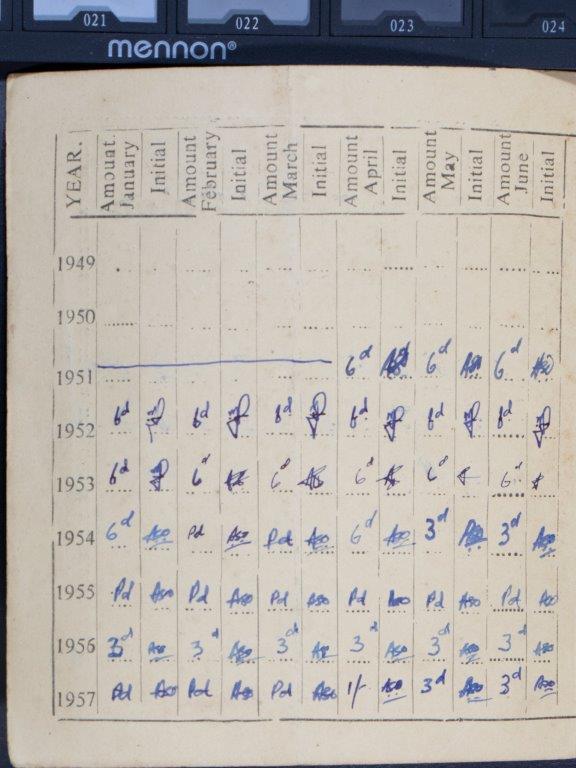 021 022 023 024
mennon®
YEAR. Amount January Initial Amount February Initial Amount March Initial Amount April Initial Amount May Initial Amount June Initial
1949
1950
1951 6d 6d 6d
1952 6d 6d 6d 6d 6d 6d
1953 6d 6d 6d 6d 6 6d
1954 6d Aso Pd Aso Pd Aso 6d Aso 3d 3d Aso
1955 Pd Aso Pd Aso Pd Aso Pd Aso Pd Aso Pd Aso
1956 3d Aso 3d Aso 3d Aso 3d Aso 3d Aso 3d Aso
1957 Pd Aso Pd Aso Pd Aso 1/- Aso 3d Aso 3d Aso